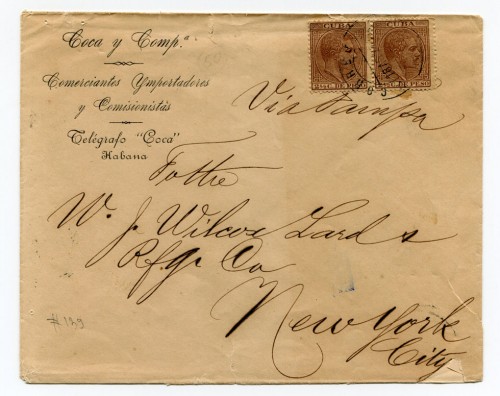 Coca y Comp.ª
Comerciantes Ymportadores
y Comisionistas
Telégrafo "Coca"
Habana
CUBA
CUBA
Via Tampa
To the
W. J. Wilcox Lard &
Rfg. Co
New York
City
#139